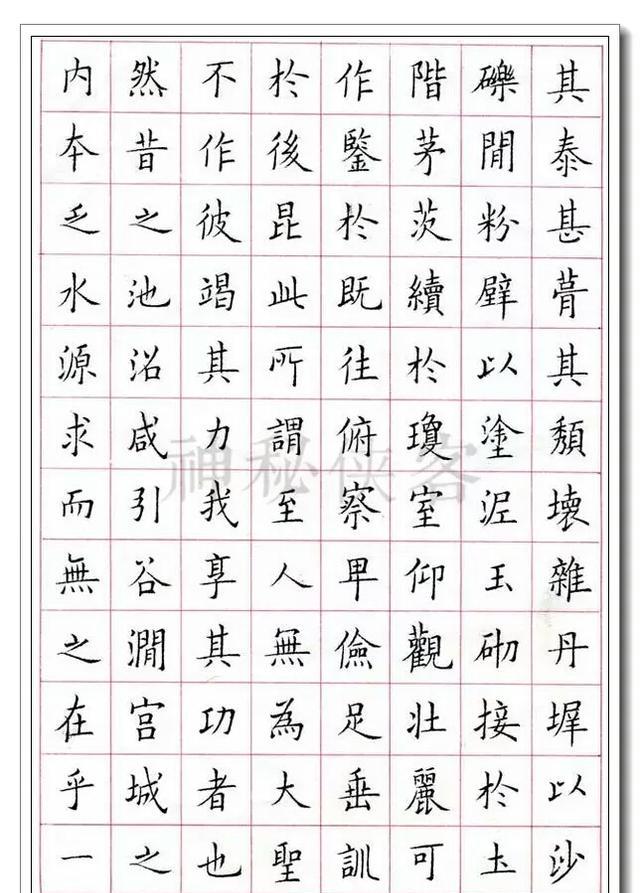 其泰甚葺其頹壞雜丹墀以沙
礫閒粉壁以塗泥玉砌接於土
階茅茨續於瓊室仰觀壯麗可
作鑒於既往俯察卑儉足垂訓
於後昆此所謂至人無為大聖
不作彼竭其力我享其功者也
然昔之池沼咸引谷澗宮城之
内本乏水源求而無之在乎一
神秘侠客